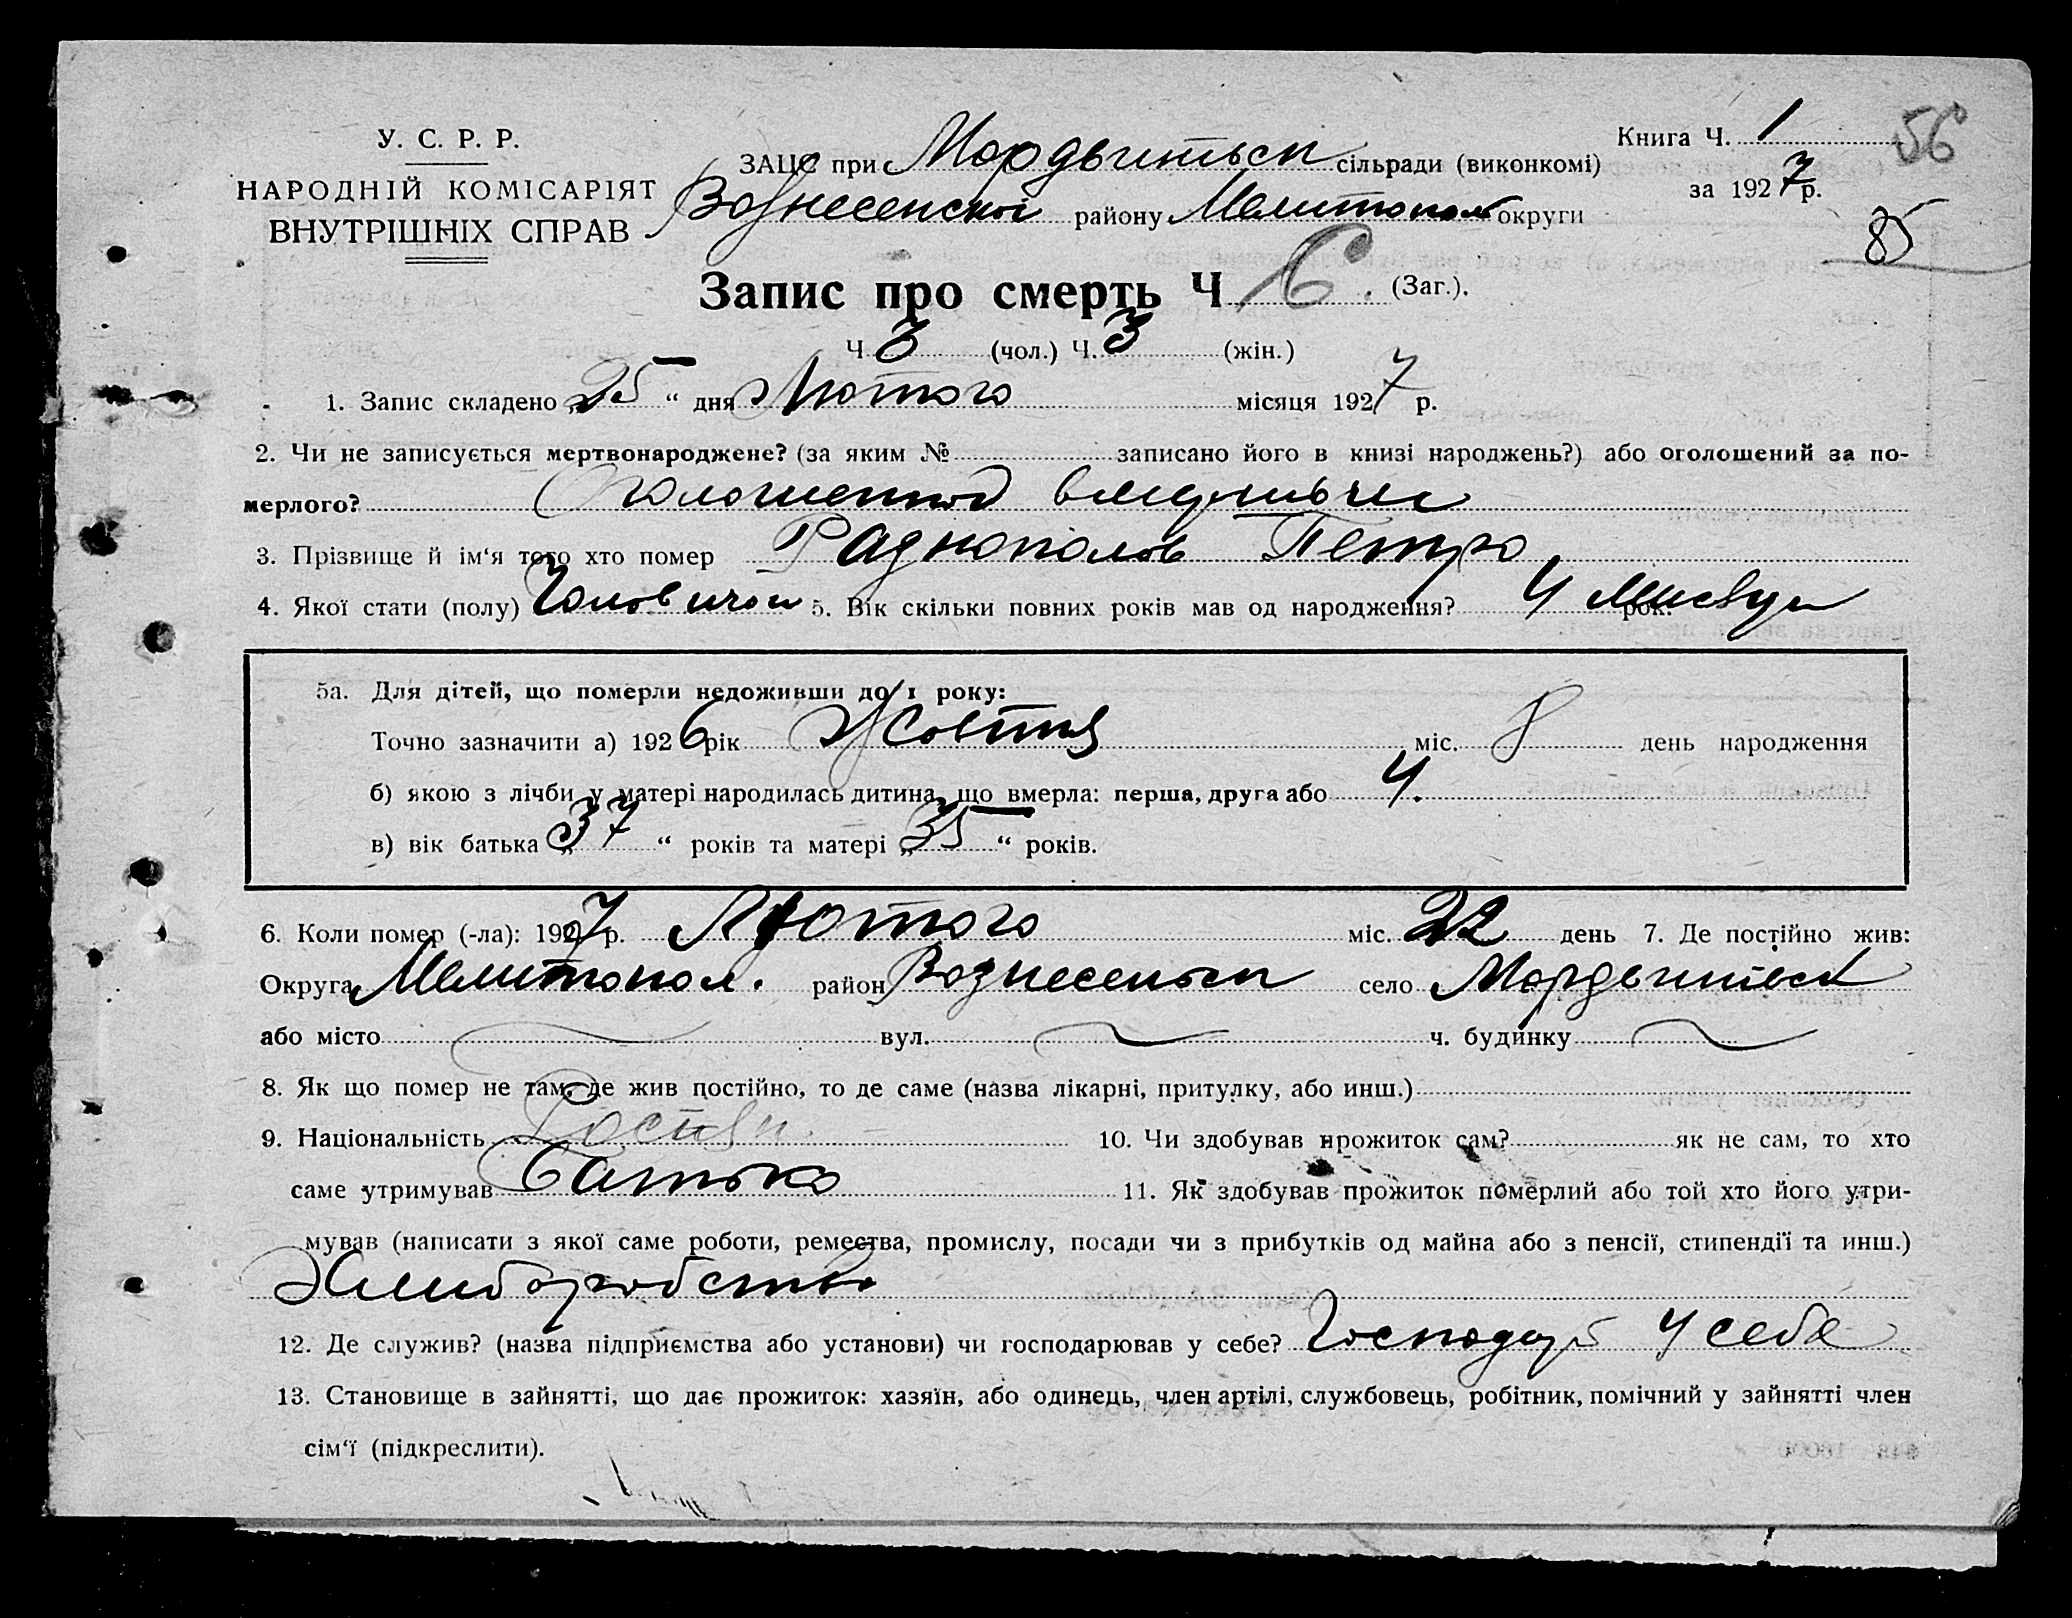 У. С. Р. Р.
НАРОДНІЙ КОМІСАРІЯТ
ВНУТРІШНІХ СПРАВ
ЗАЦС при Мордвитьск сільради (виконкомі)
Вознесенскої району Мелитопол округи
Книга Ч. 1
56
за 1927 р.
85
Запис про смерть Ч 6. (Заг.).
Ч 3 (чол.) Ч. 3 (жін.)
1. Запис складено „25“ дня Лютого місяця 1927 р.
2. Чи не записується мертвонароджене? (за яким № записано його в книзі народжень?) або оголошений за по-
мерлого? Оголошеной
3. Прізвище й ім‘я того хто помер Раднополов Петро
4. Якої стати (полу) Чоловичои 5. Вік скільки повних років мав од народження? 4 рок.
5а. Для дітей, що померли недоживши до 1 року:
Точно зазначити а) 1926 рік Жовтня міс. 8 день народження
б) якою з лічби у матері народилась дитина, що вмерла: перша, друга або 4.
в) вік батька „37“ років та матері „35“ років.
6. Коли помер (-ла): 1927 р. Лютого міс. 22 день 7. Де постійно жив:
Округа Мелитопол. район Вознесеньск село Мордвитьск
або місто вул. ч. будинку
8. Як що помер не там, де жив постійно, то де саме (назва лікарні, притулку, або инш.)
9. Національність 10. Чи здобував прожиток сам? як не сам, то хто
саме утримував Батько 11. Як здобував прожиток померлий або той хто його утри-
мував (написати з якої саме роботи, ремества, промислу, посади чи з прибутків од майна або з пенсії, стипендії та инш.)
Хлиборобство
12. Де служив? (назва підприємства або установи) чи господарював у себе? Господар у себе
13. Становище в зайнятті, що дає прожиток: хазяїн, або одинець, член артілі, службовець, робітник, помічний у зайнятті член
сім‘ї (підкреслити).